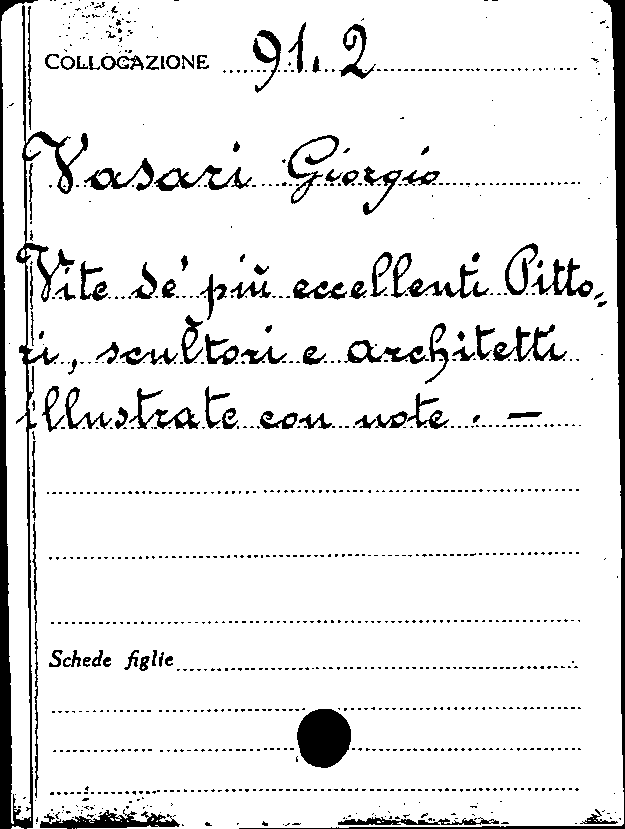 COLLOCAZIONE 91.2
Vasari Giorgio
Vite de' più eccellenti Pitto-
ri, scultori e architetti
illustrate con note. —
Schede figlie